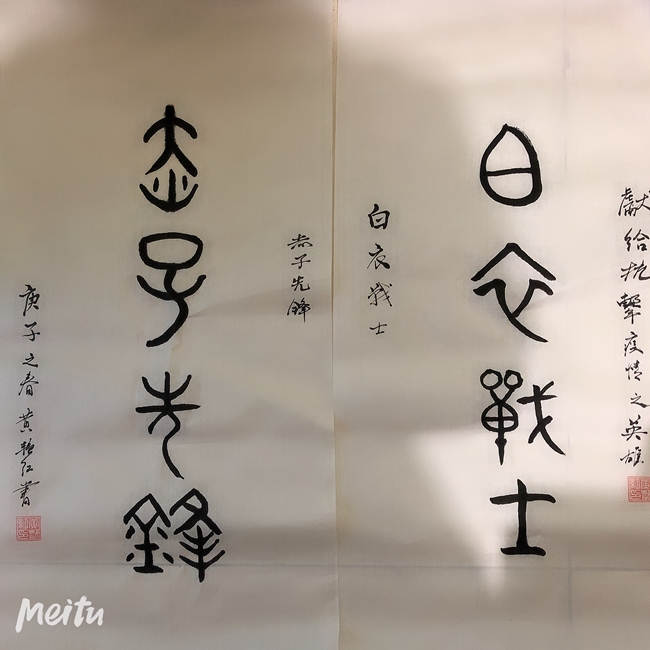 獻给抗擊疫情之英雄
白衣戰士
白衣战士
赤子先鋒
赤子先鋒
庚子之春 黄艳红書
Meitu